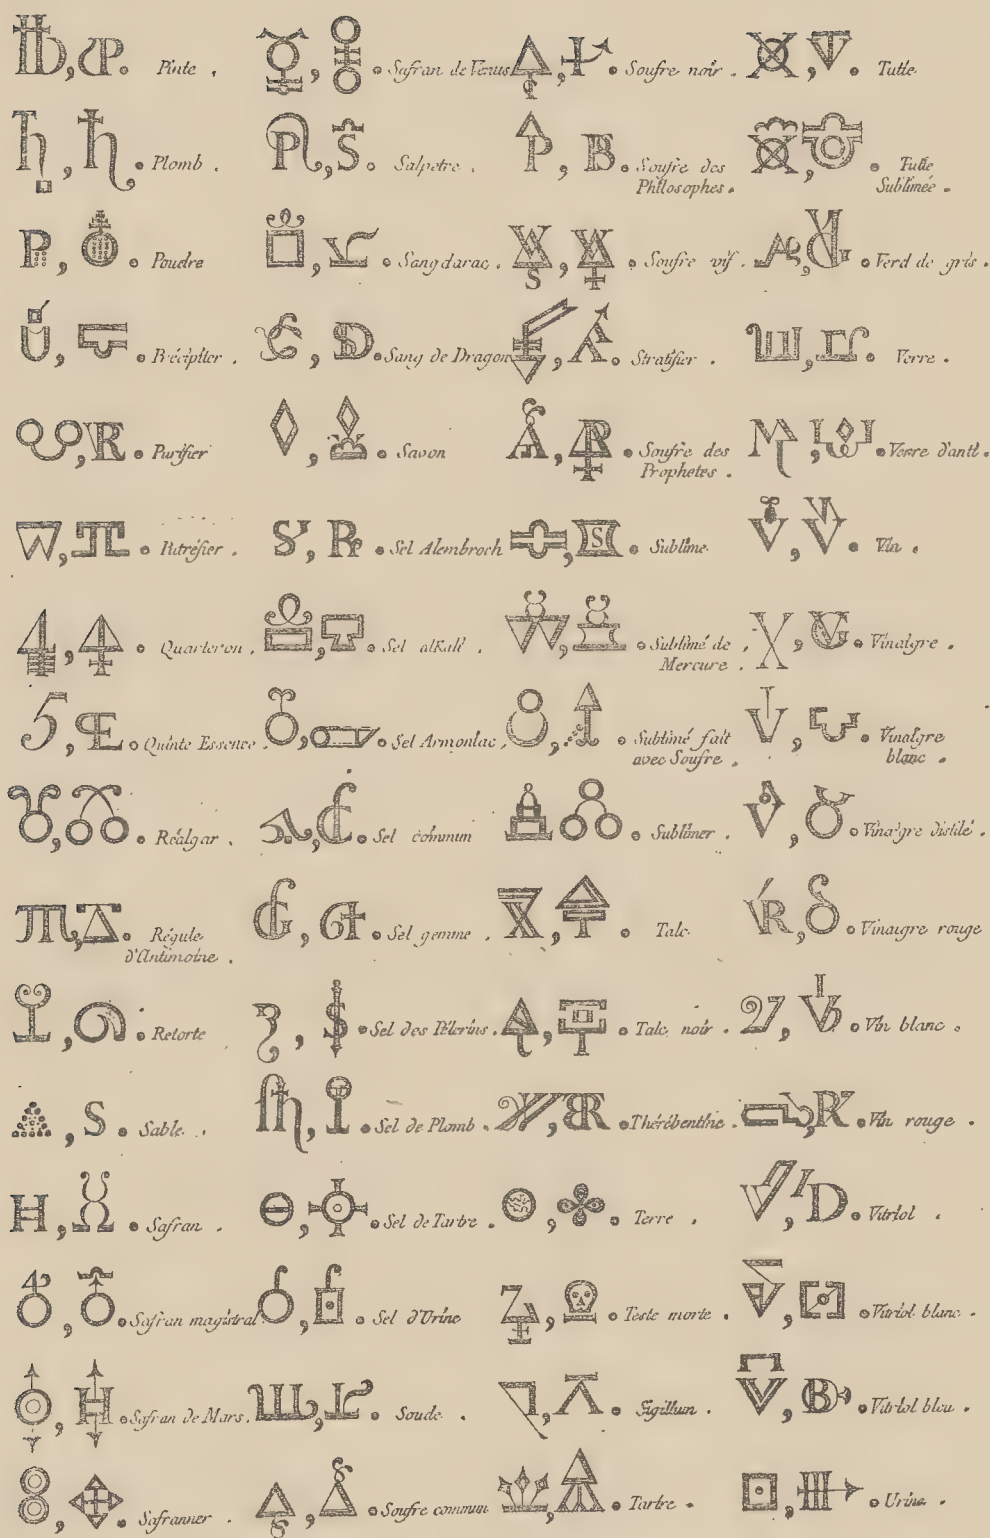 Pinte .
Plomb .
Poudre
Précipiter .
Purifier
Putréfier .
Quarteron .
Quinte Essence
Réalgar .
Régule
d'Antimoine .
Retorte
Sable .
Safran .
Safran magistral
Safran de Mars .
Safranner .
Safran de Venus
Salpetre .
Sang darac .
Sang de Dragon
Savon
Sel Alembroch
Sel alKali .
Sel Armoniac ,
Sel commun
Sel gemme .
Sel des Pélerins .
Sel de Plomb .
Sel de Tartre .
Sel d'Urine
Soude .
Soufre commun
Soufre noir .
Soufre des
Philosophes .
Soufre vif .
Stratifier .
Soufre des
Prophetes .
Sublime
Sublimé de
Mercure .
Sublimé fait
avec Soufre .
Sublimer .
Talc
Talc noir .
Thérébentine .
Terre .
Teste morte .
Sigillum .
Tartre .
Tutie
Tutie
Sublimée .
Verd de gris .
Verre .
Verre d'anti .
Vin .
Vinaigre .
Vinaigre
blanc .
Vinaigre distilé .
Vinaigre rouge
Vin blanc .
Vin rouge .
Vitriol .
Vitriol blanc .
Vitriol bleu .
Urine .